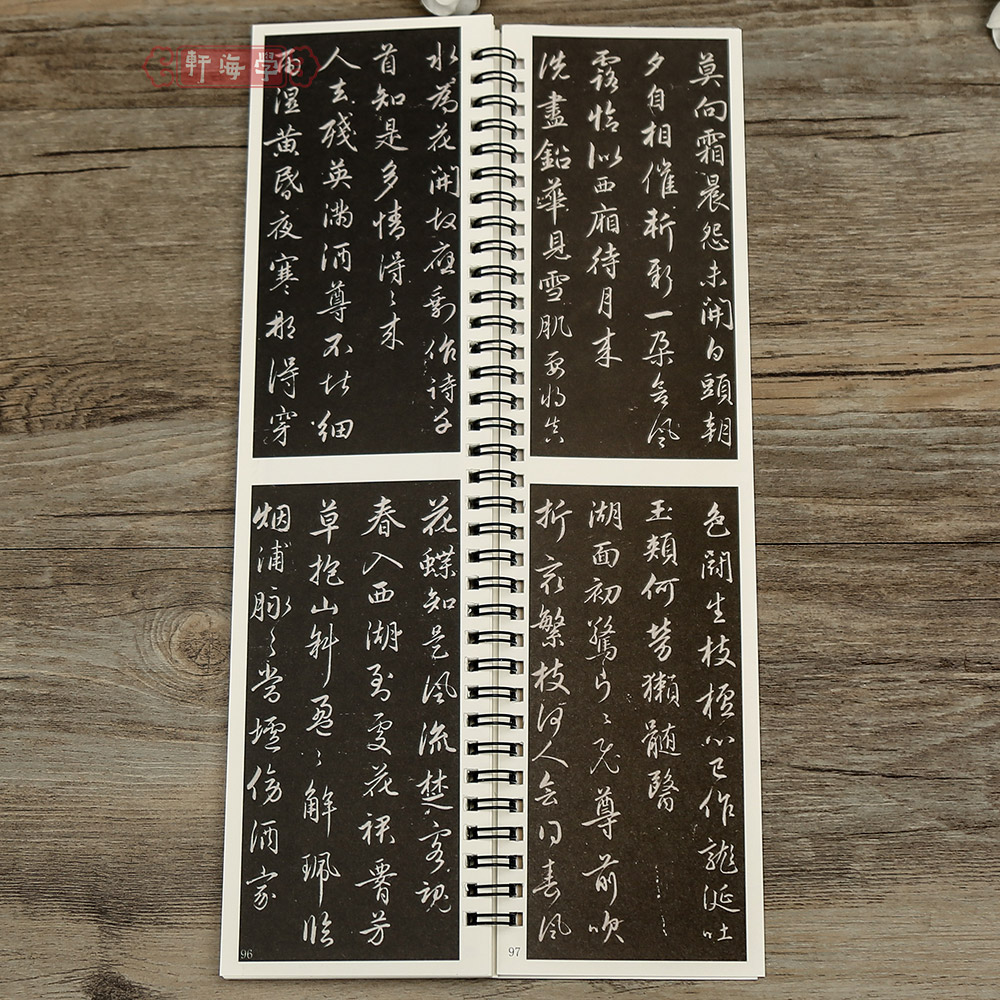 學海軒
水為花開故應剩作詩千
首知是多情得〻来
人去殘英滿酒尊不堪細
雨湿黄昏夜寒那得穿
花蝶知是風流楚客魂
春入西湖到處花裙腰芳
草抱山斜盈〻解珮臨
烟浦脉〻當壚傍酒家
96
莫向霜晨怨未開白頭朝
夕自相催斬新一朵含風
露恰似西廂待月来
洗盡鉛華見雪肌要將真
色鬪生枝檀心已作龍涎吐
玉頰何勞獺髓醫
湖面初驚片〻飛尊前吹
折最繁枝何人會得春風
97